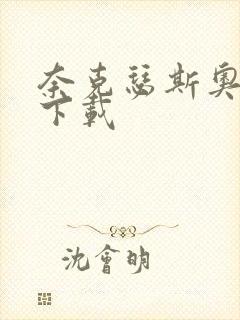 奈克瑟斯奧
下載
沈會明